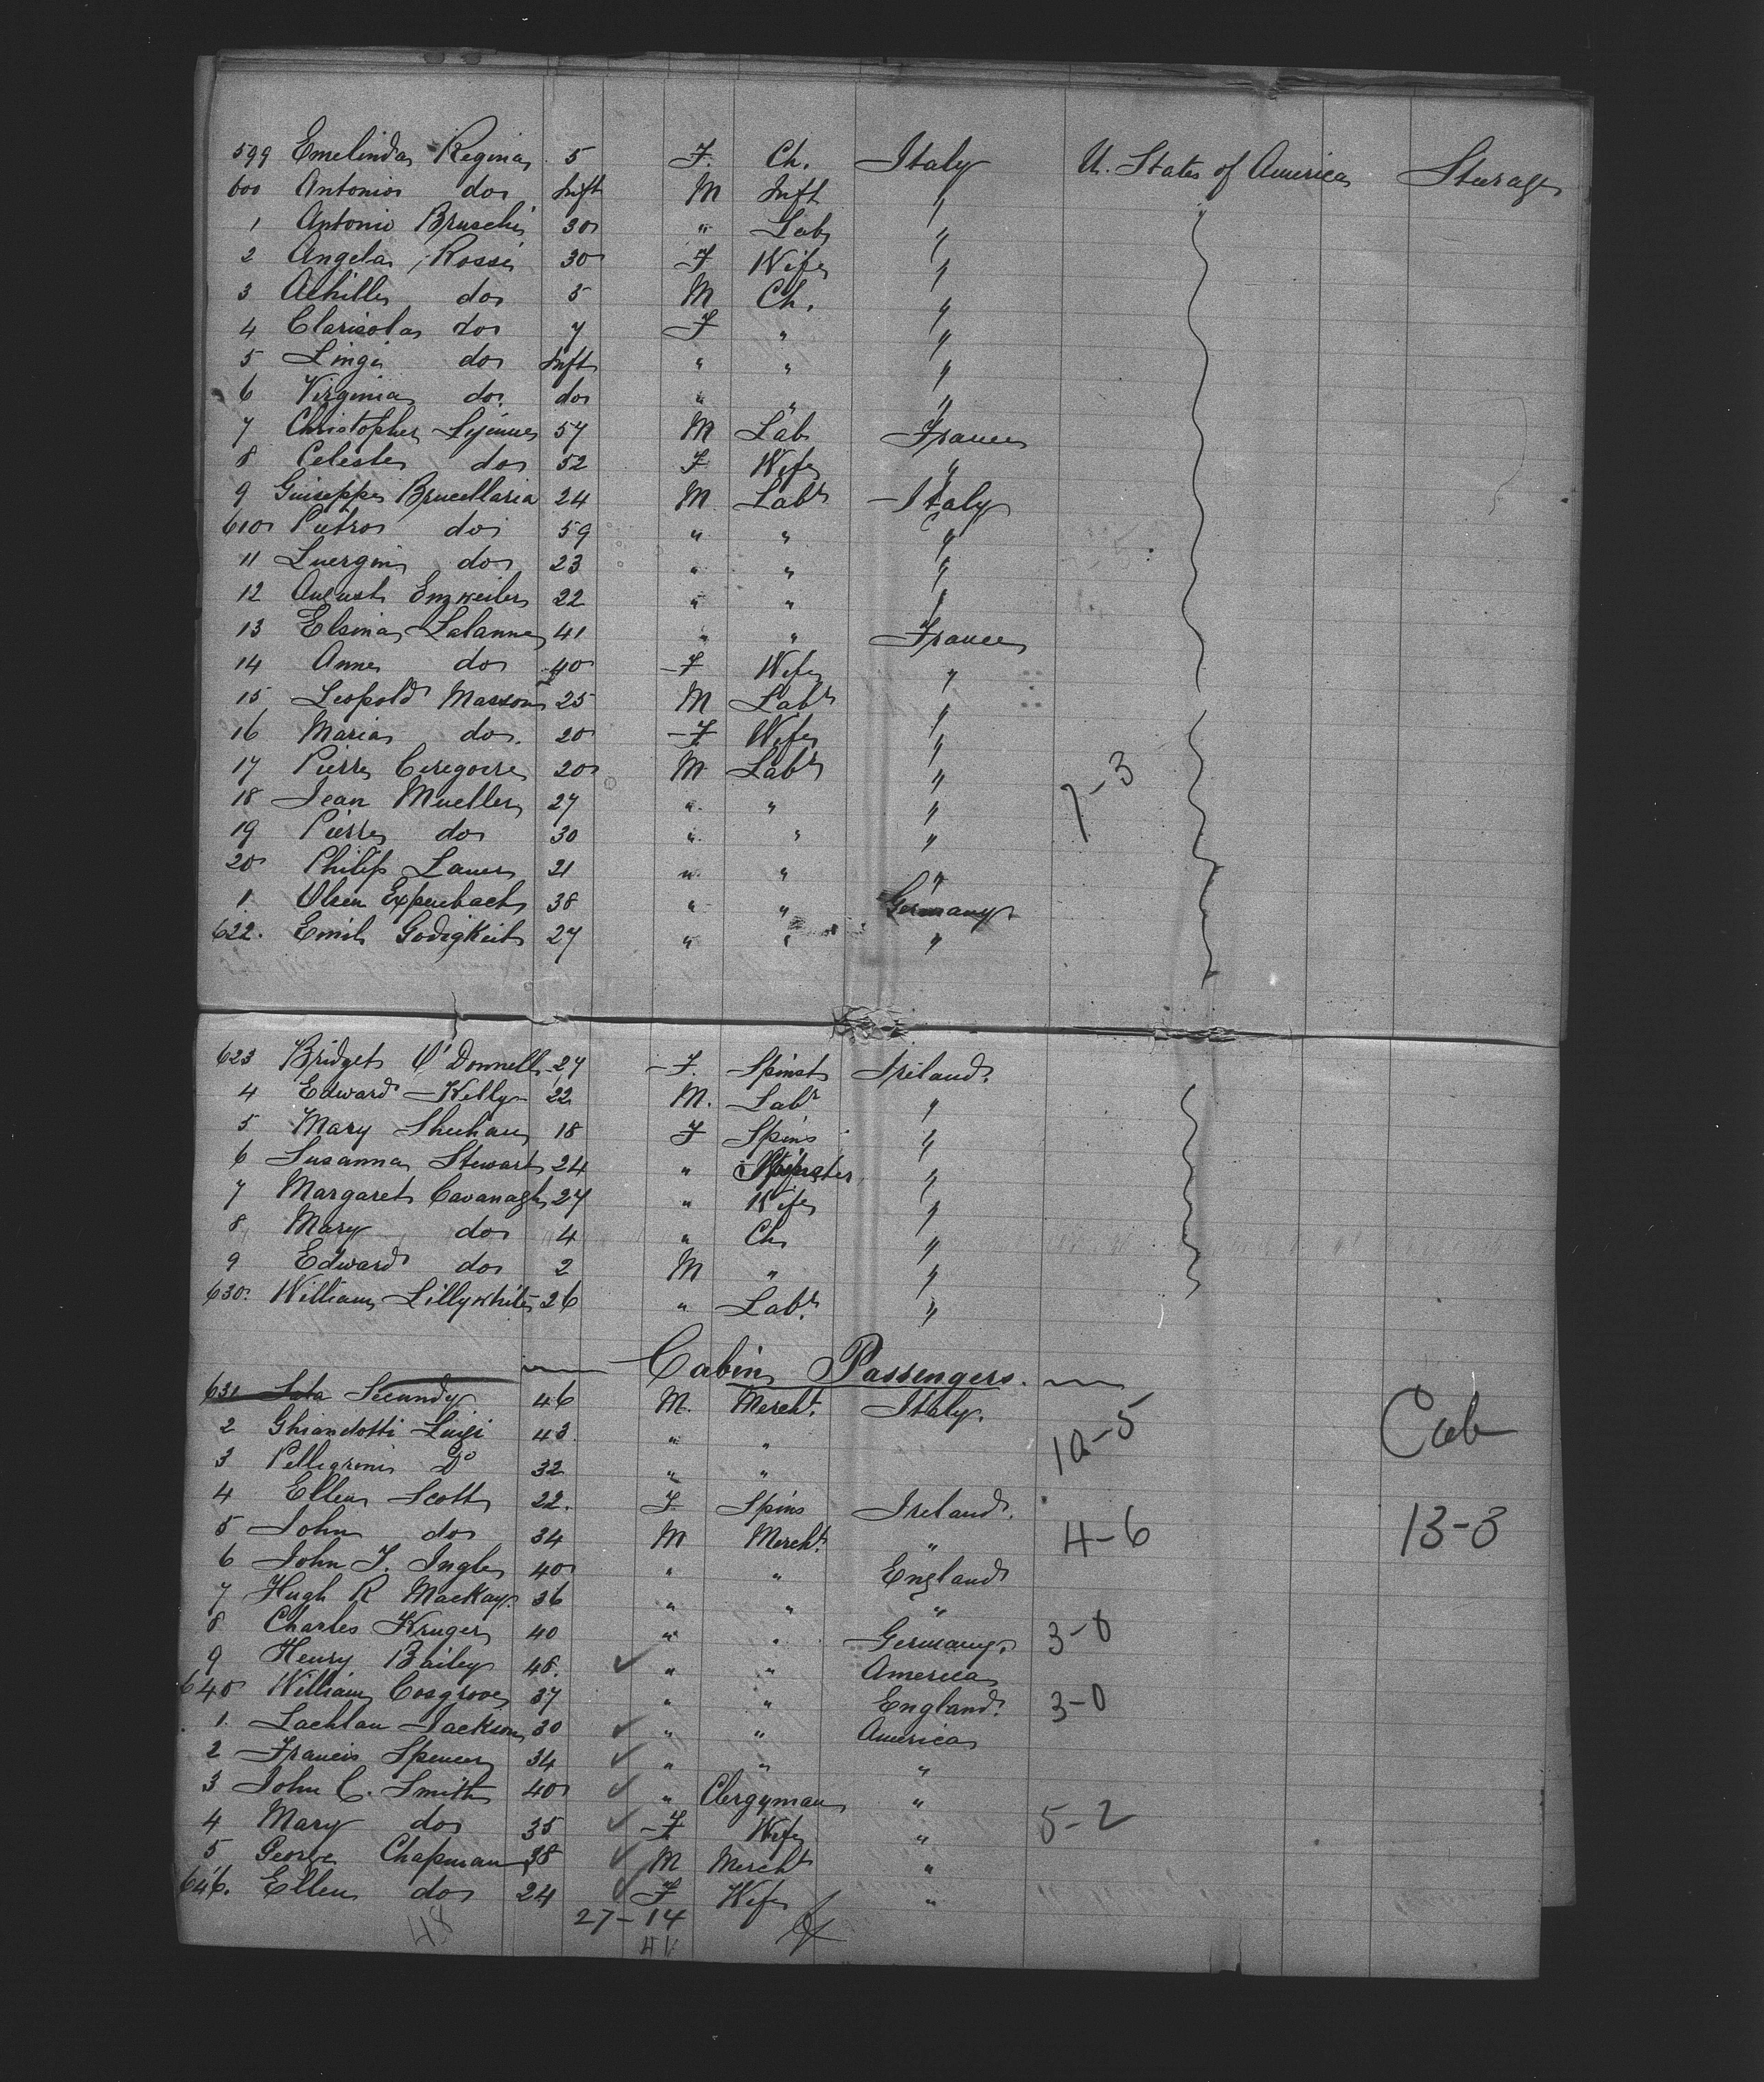 599 Emelinda Regina 5 F. Ch. Italy U. States of America Steerage
600 Antonio do Inft M Inft "
1 Antonio Bruschi 30 " Lab "
2 Angela Rossi 30 F Wife "
3 Achille do 5 M Ch. "
4 Clarisola do 7 F " "
5 Lingi do Inft " " "
6 Virginia do. do " " "
7 Christopher Lejeune 57 M Lab France
8 Celeste do 52 F Wife "
9 Guiseppe Brucellaria 24 M Labr Italy
610 Pietro do 59 " " "
11 Luergin do 23 " " "
12 August Emzweiler 22 " " "
13 Elsina Lalanne 41 " " France
14 Anne do 40 F Wife "
15 Leopold Masson 25 M Labr "
16 Maria do. 20 F Wife "
17 Pierre Ceregoire 20 M Labr " 7-3
18 Jean Mueller 27 " " "
19 Pierre do 30 " " "
20 Philip Lauer 21 " " "
1 Olsen Expenbach 38 " " Germany
622. Emil Godigkeit 27 " " "
623 Bridget O'Donnell 27 F. Spinst Ireland.
4 Edward Kelly 22 M. Labr "
5 Mary Sheehan 18 F Spins "
6 Susanna Stewart 24 " "
7 Margaret Cavanagh 27 " Wife "
8 Mary do 4 " Ch "
9 Edward do 2 M " "
630. William Lillywhite 26 " Labr. "
Cabin Passengers.
631 Sala Secundy 46 M. Mercht. Italy.
2 Ghiandotti Luigi 43 " " 10-5 Cab
3 Pellegrini Do 32 " "
4 Ellen Scott 22. F Spins Ireland.
5 John do 34 M Mercht. " 4-6 13-3
6 John J. Ingle 40 " " England
7 Hugh R Mackay. 36 " " "
8 Charles Kruger 40 " " Germany. 3-0
9 Henry Bailey 48. " " America
640 William Cosgrove 37 " " England. 3-0
1. Lachlan Jackson 30 " " America
2 Francis Spencer 34 " " "
3 John C. Smith 40 " Clergyman "
4 Mary do 35 F Wife " 5-2
5 George Chapman 38 M Mercht "
646. Ellen do 24 F Wife "
48 27-14
41